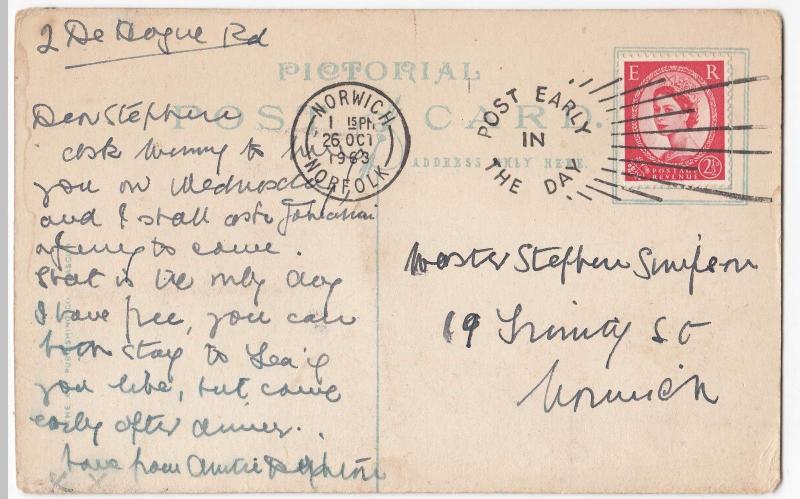 2 De Hague Rd
PICTORIAL
POST CARD.
ADDRESS ONLY HERE.
NORWICH
1 15 PM
26 OCT
1963
NORFOLK
POST EARLY
IN
THE DAY
E R
2½D
POSTAGE
REVENUE
Dear Stephen
I ask Mummy to
you on Wednesday
and I shall ask
to come.
that is the only day
I have free, you can
both stay to Tea if
you like, but come
early after dinner.
love from Auntie
x x
Master Stephen Simpson
19 Trinity St
Norwich